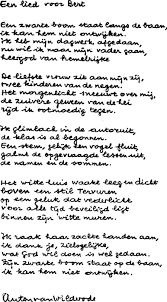 Een lied voor Bert
Een zwarte boom staat langs de baan,
ik kan hem niet ontwijken.
Ik heb mijn dagwerk afgedaan,
nu wil ik naar mijn vader gaan,
heergod van hemelrijke
De liefste vrouw zit aan mijn zij,
twee kinderen van de negen.
Het morgenlicht sneeuwt over mij,
de zuivere geuren van de hei
rijd ik rotmoedig tegen.
Ik glimlach in de autoruit,
de klas is al begonnen.
Een stem, gelijk een vogel fluit,
galmt de opgevraagde lessen uit,
de namen en de sommen.
Het witte huis waakt leeg en dicht
boven een stil Tervuren,
op een geluk dat vederlicht
voor alle tijd beveiligd ligt
binnen zijn witte muren.
Ik raak haar zachte handen aan,
ik dank je, zielsgelijke,
was God wil doen is wel gedaan.
Een zwarte boom staat op de baan,
ik kan hem niet ontwijken.
Anton van Wilderode